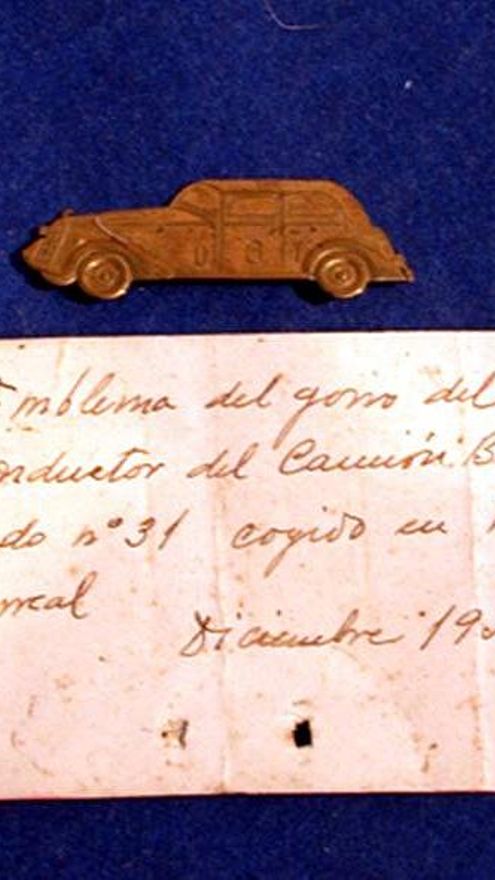 U G T
Emblema del gorro del
onductor del Camión B
do nº 31 cogido en
rreal
Diciembre 19